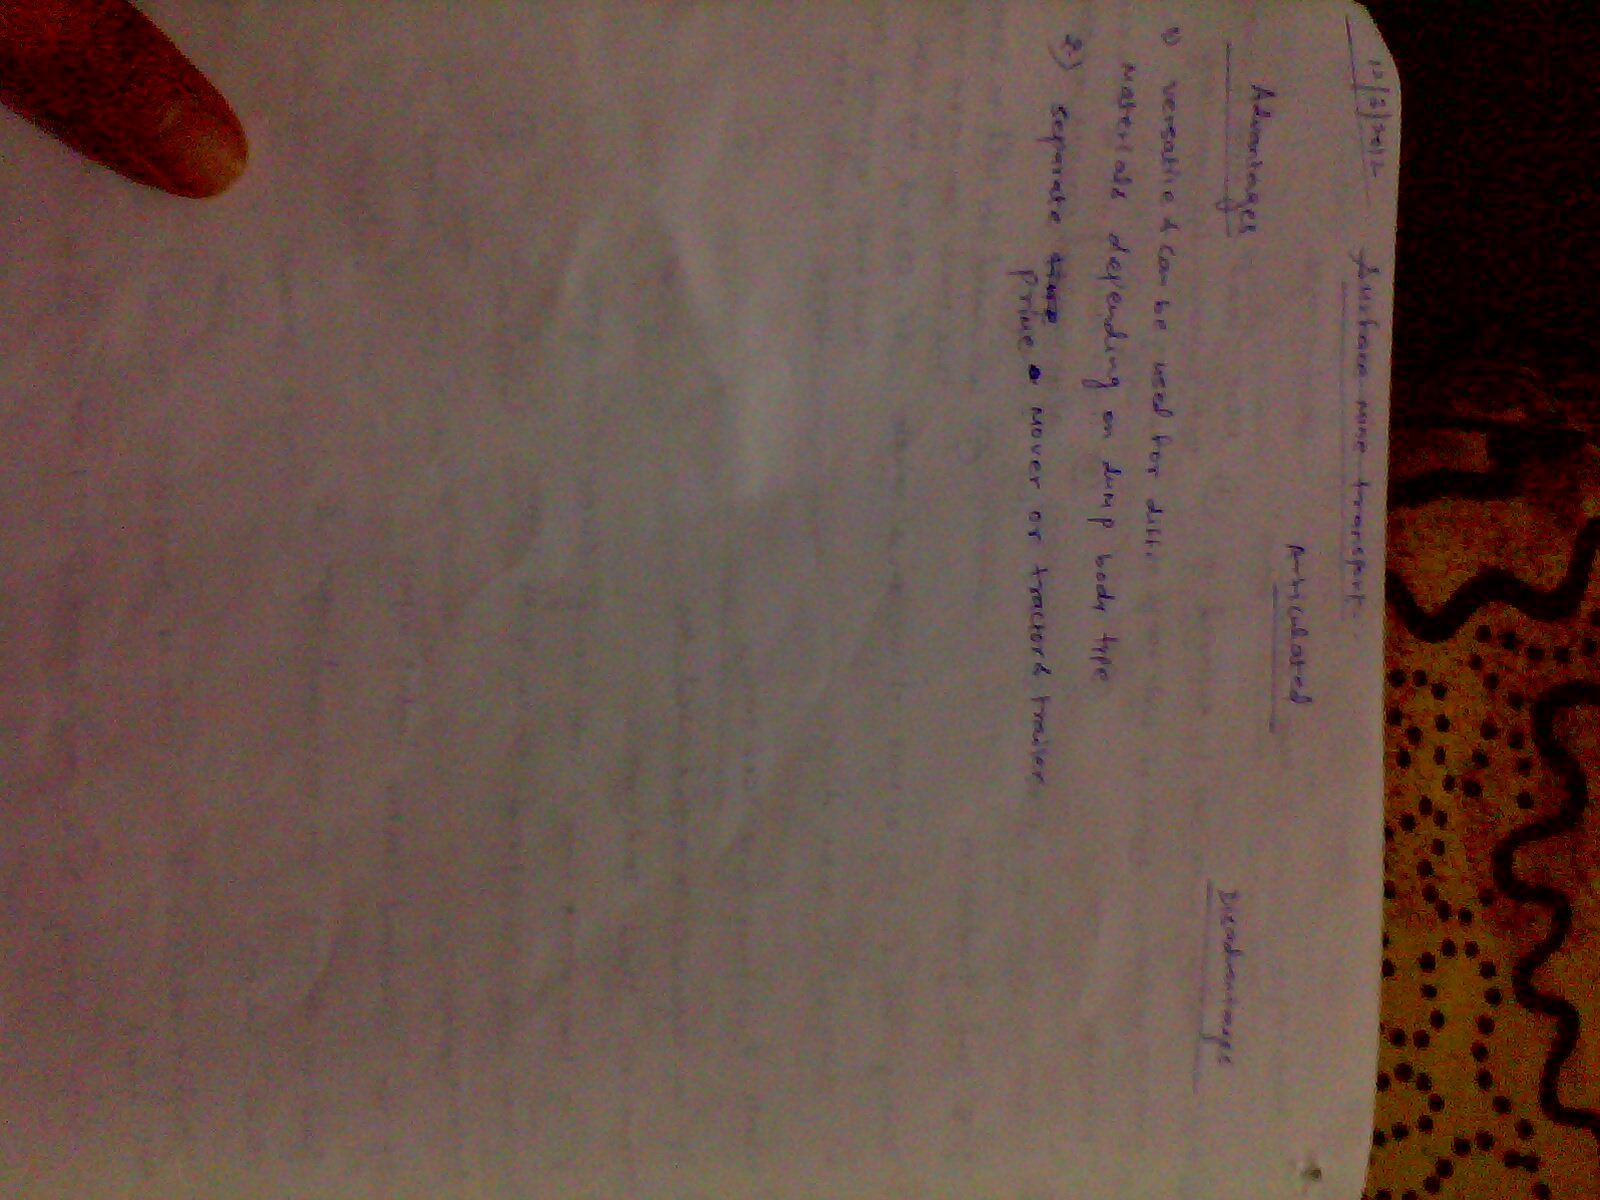 12/3/2012 Surface mine transport.
Articulated
Advantages Disadvantages
1) versatile & can be used for diff.
materials depending on dump body type
2) separate
prime mover or tractor & trailer